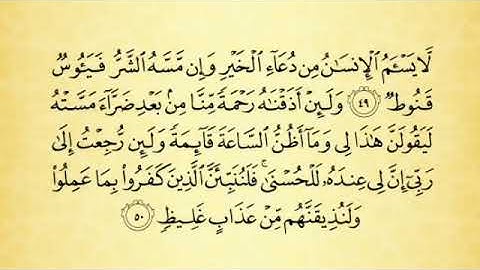 لَّا يَسْـَٔمُ ٱلْإِنسَـٰنُ مِن دُعَآءِ ٱلْخَيْرِ وَإِن مَّسَّهُ ٱلشَّرُّ فَيَـُٔوسٌ
قَنُوطٌ ٤٩ وَلَئِنْ أَذَقْنَـٰهُ رَحْمَةً مِّنَّا مِنۢ بَعْدِ ضَرَّآءَ مَسَّتْهُ
لَيَقُولَنَّ هَـٰذَا لِى وَمَآ أَظُنُّ ٱلسَّاعَةَ قَآئِمَةً وَلَئِن رُّجِعْتُ إِلَىٰ
رَبِّىٓ إِنَّ لِى عِندَهُۥ لَلْحُسْنَىٰ ۚ فَلَنُنَبِّئَنَّ ٱلَّذِينَ كَفَرُوا۟ بِمَا عَمِلُوا۟
وَلَنُذِيقَنَّهُم مِّنْ عَذَابٍ غَلِيظٍ ٥٠